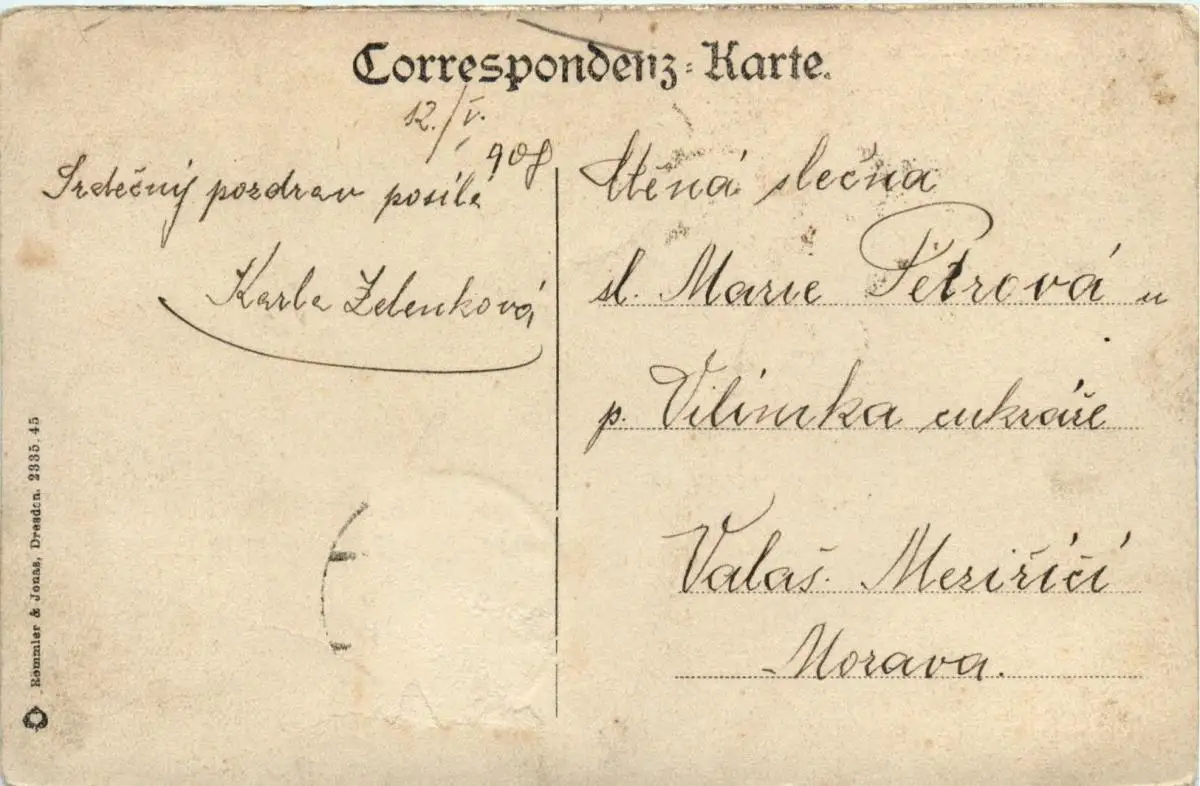 Correspondenz-Karte.
12./V. 908
Srdečný pozdrav posílá
Karla Zelenková
Ctěná slečna
sl. Marie Petrová u
p. Vilímka cukráře
Valaš. Meziříčí
Morava.
Römmler & Jonas, Dresden. 2335.45